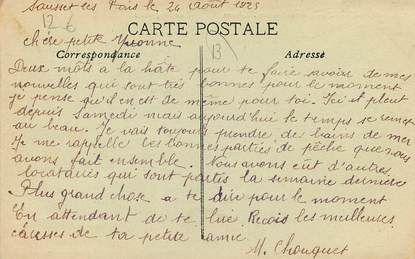 Sausset les Pins le 24 Août 1925
12 6
CARTE POSTALE
chère petite Yvonne
13
Correspondance
Adresse
Deux mots à la hâte pour te faire savoir de mes
nouvelles qui sont très bonnes pour le moment
je pense qu'il en est de même pour toi. Ici il pleut
depuis Samedi mais aujourd'hui le temps se remet
au beau. Je vais toujours prendre de bains de mer
Je me rappelle les bonnes parties de pêche que nous
avons fait ensemble. Nous avons eut d'autres
locataires qui sont partis la semaine dernière
Plus grand chose a te dire pour le moment
En attendant de te lire. Recois les meilleures
caresses de ta petite amie.
M. Chouquet